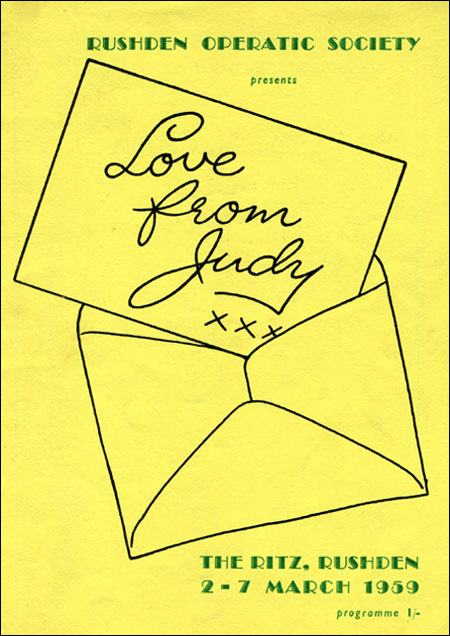 RUSHDEN OPERATIC SOCIETY
presents
Love
from
Judy
xxx
THE RITZ, RUSHDEN
2 - 7 MARCH 1959
programme 1/-